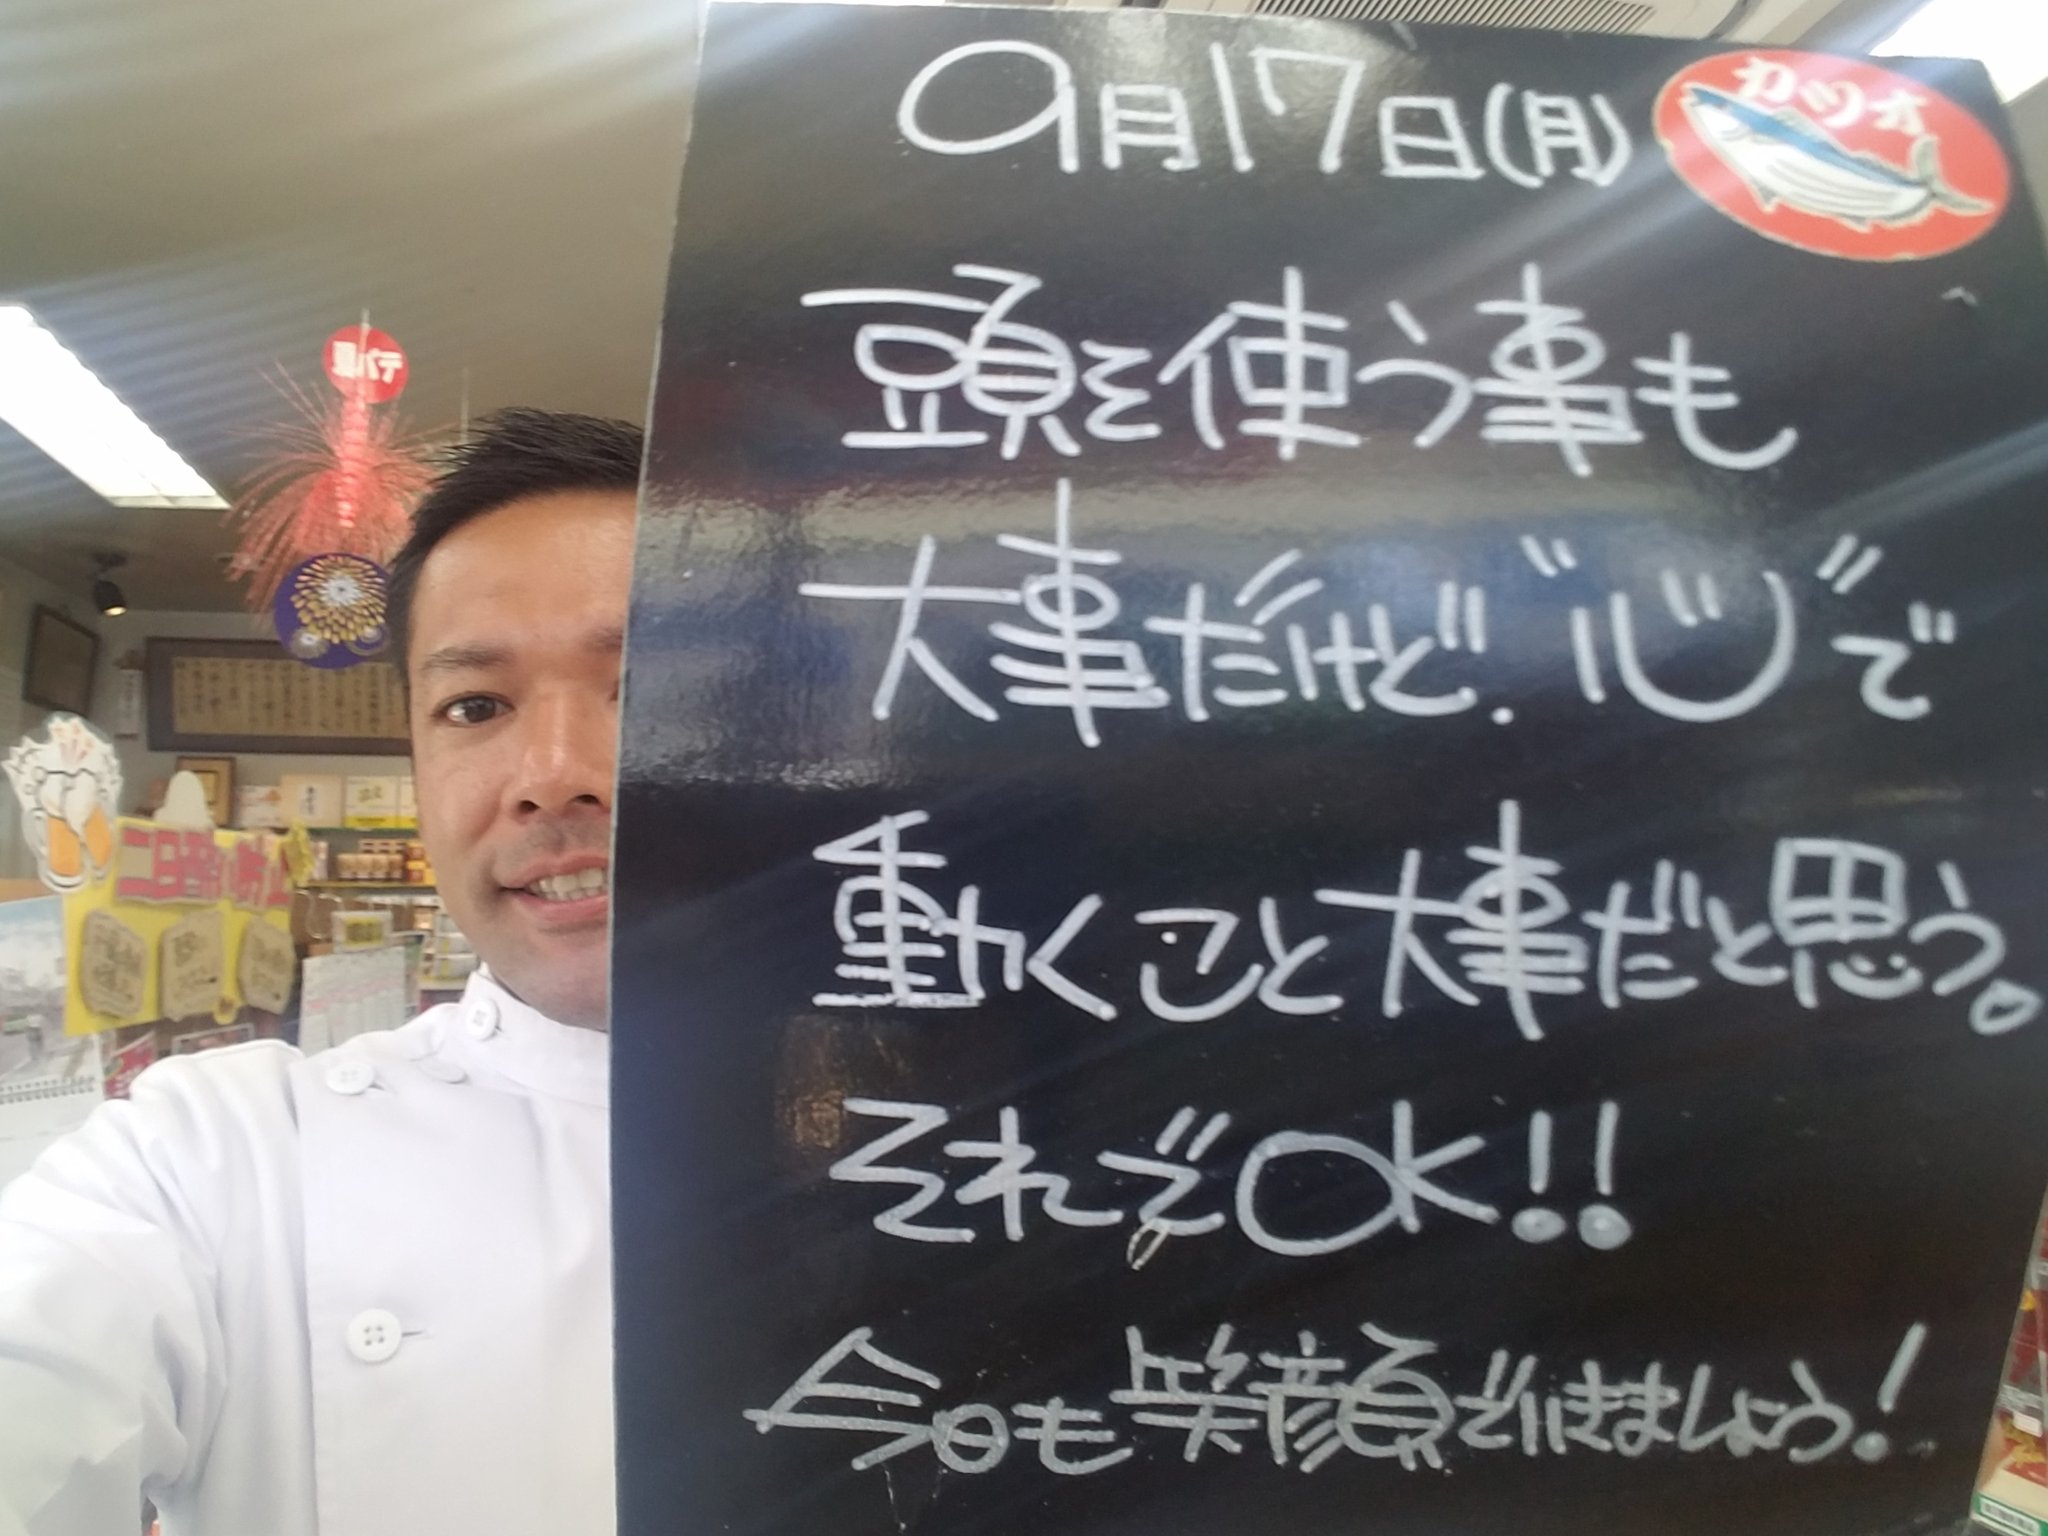 9月17日(月)
カツオ
頭を使う事も
大事だけど."心"で
動くこと大事だと思う。
それでOK!!
今日も笑顔でいきましょう!